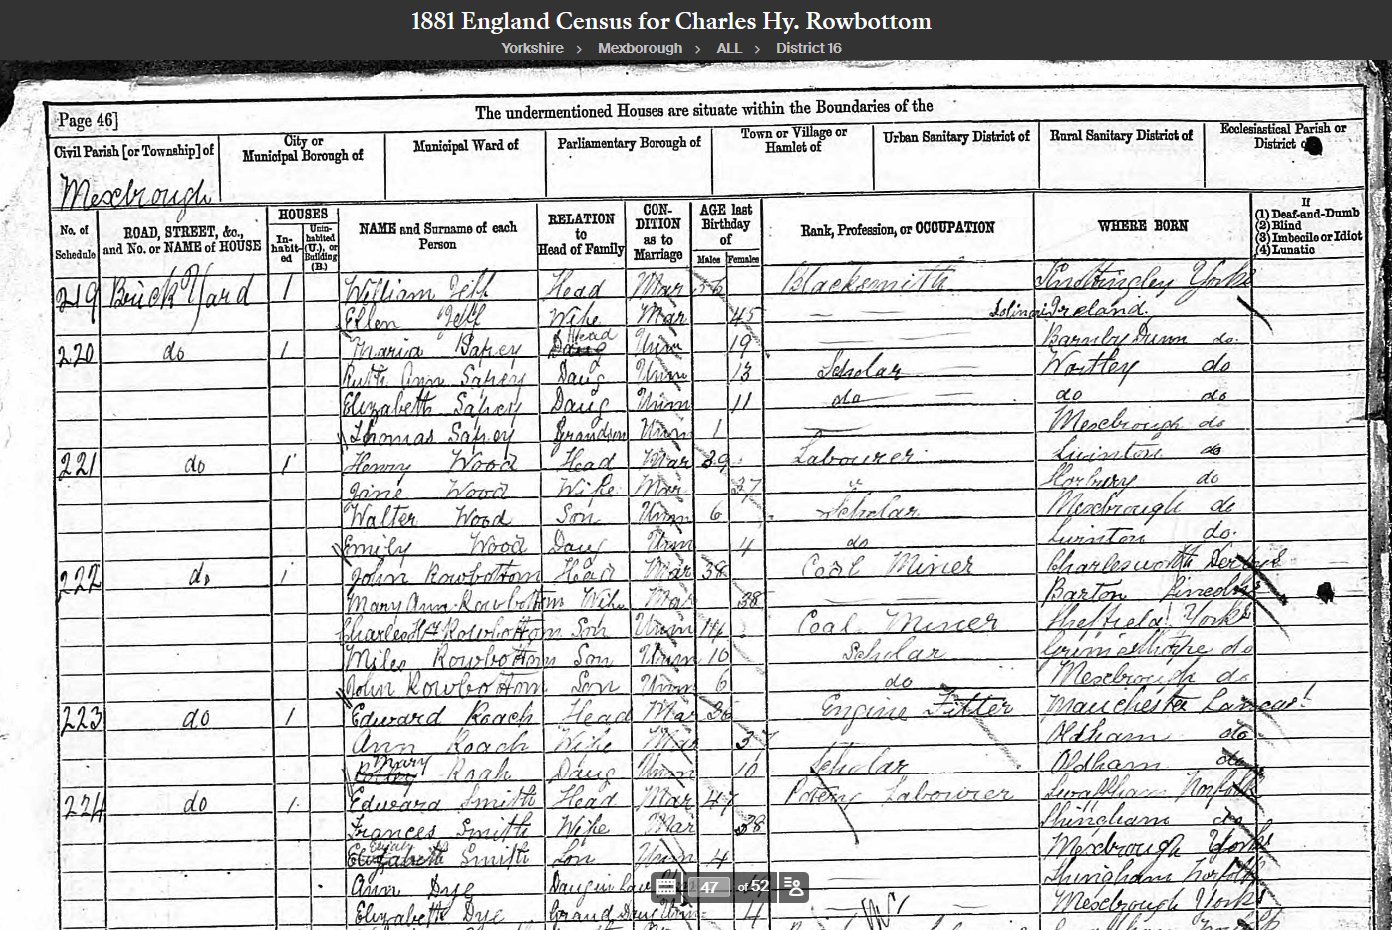 1881 England Census for Charles Hy. Rowbottom
Yorkshire > Mexborough > ALL > District 16
Page 46]
The undermentioned Houses are situate within the Boundaries of the
Civil Parish [or Township] of
City or Municipal Borough of
Municipal Ward of
Parliamentary Borough of
Town or Village or Hamlet of
Urban Sanitary District of
Rural Sanitary District of
Ecclesiastical Parish or District of
Mexbrough
No. of Schedule
ROAD, STREET, &c., and No. or NAME of HOUSE
HOUSES
In-habit-ed
Unin-habited (U.), or Building (B.)
NAME and Surname of each Person
RELATION to Head of Family
CON-DITION as to Marriage
AGE last Birthday of
Males
Females
Rank, Profession, or OCCUPATION
WHERE BORN
If
(1) Deaf-and-Dumb
(2) Blind
(3) Imbecile or Idiot
(4) Lunatic
219 Brick Yard 1 William Head Mar Blacksmith Knottingley Yorks
Ellen Wife Mar 45 Ireland.
220 do 1 Maria Sapey Head Unm 19 Barnby Dunn do.
Ruth Ann Sapey Daug Unm 13 Scholar Wortley do
Elizabeth Sapey Daug Unm 11 do do do
Thomas Sapey Grandson Unm 1 Mexbrough do
221 do 1 Henry Wood Head Mar 39 Labourer Swinton do
Jane Wood Wife Mar 37 Horbury do
Walter Wood Son Unm 6 Scholar Mexbrough do
Emily Wood Daug Unm 4 do Swinton do.
222 do 1 John Rowbottom Head Mar 38 Coal Miner Charlesworth Derbys
Mary Ann Rowbottom Wife Mar 38 Barton Lincolns
Charles Hy Rowbottom Son Unm 14 Coal Miner Sheffield Yorks
Miles Rowbottom Son Unm 10 Scholar Grimesthorpe do
John Rowbottom Son Unm 6 do Mexbrough do
223 do 1 Edward Roach Head Mar 36 Engine Fitter Manchester Lancas
Ann Roach Wife Mar 37 Oldham do
Mary Roach Daug Unm 10 Scholar Oldham do
224 do 1 Edward Smith Head Mar 47 Potery Labourer Swaffham Norfolk
Frances Smith Wife Mar 38 Shingham do
Elijah Smith Son Unm 4 Mexbrough Yorks
Ann Dye Daug in Law Shingham Norfolk
Elizabeth Dye Grand Daug Unm 4 Mexbrough Yorks
47 of 52